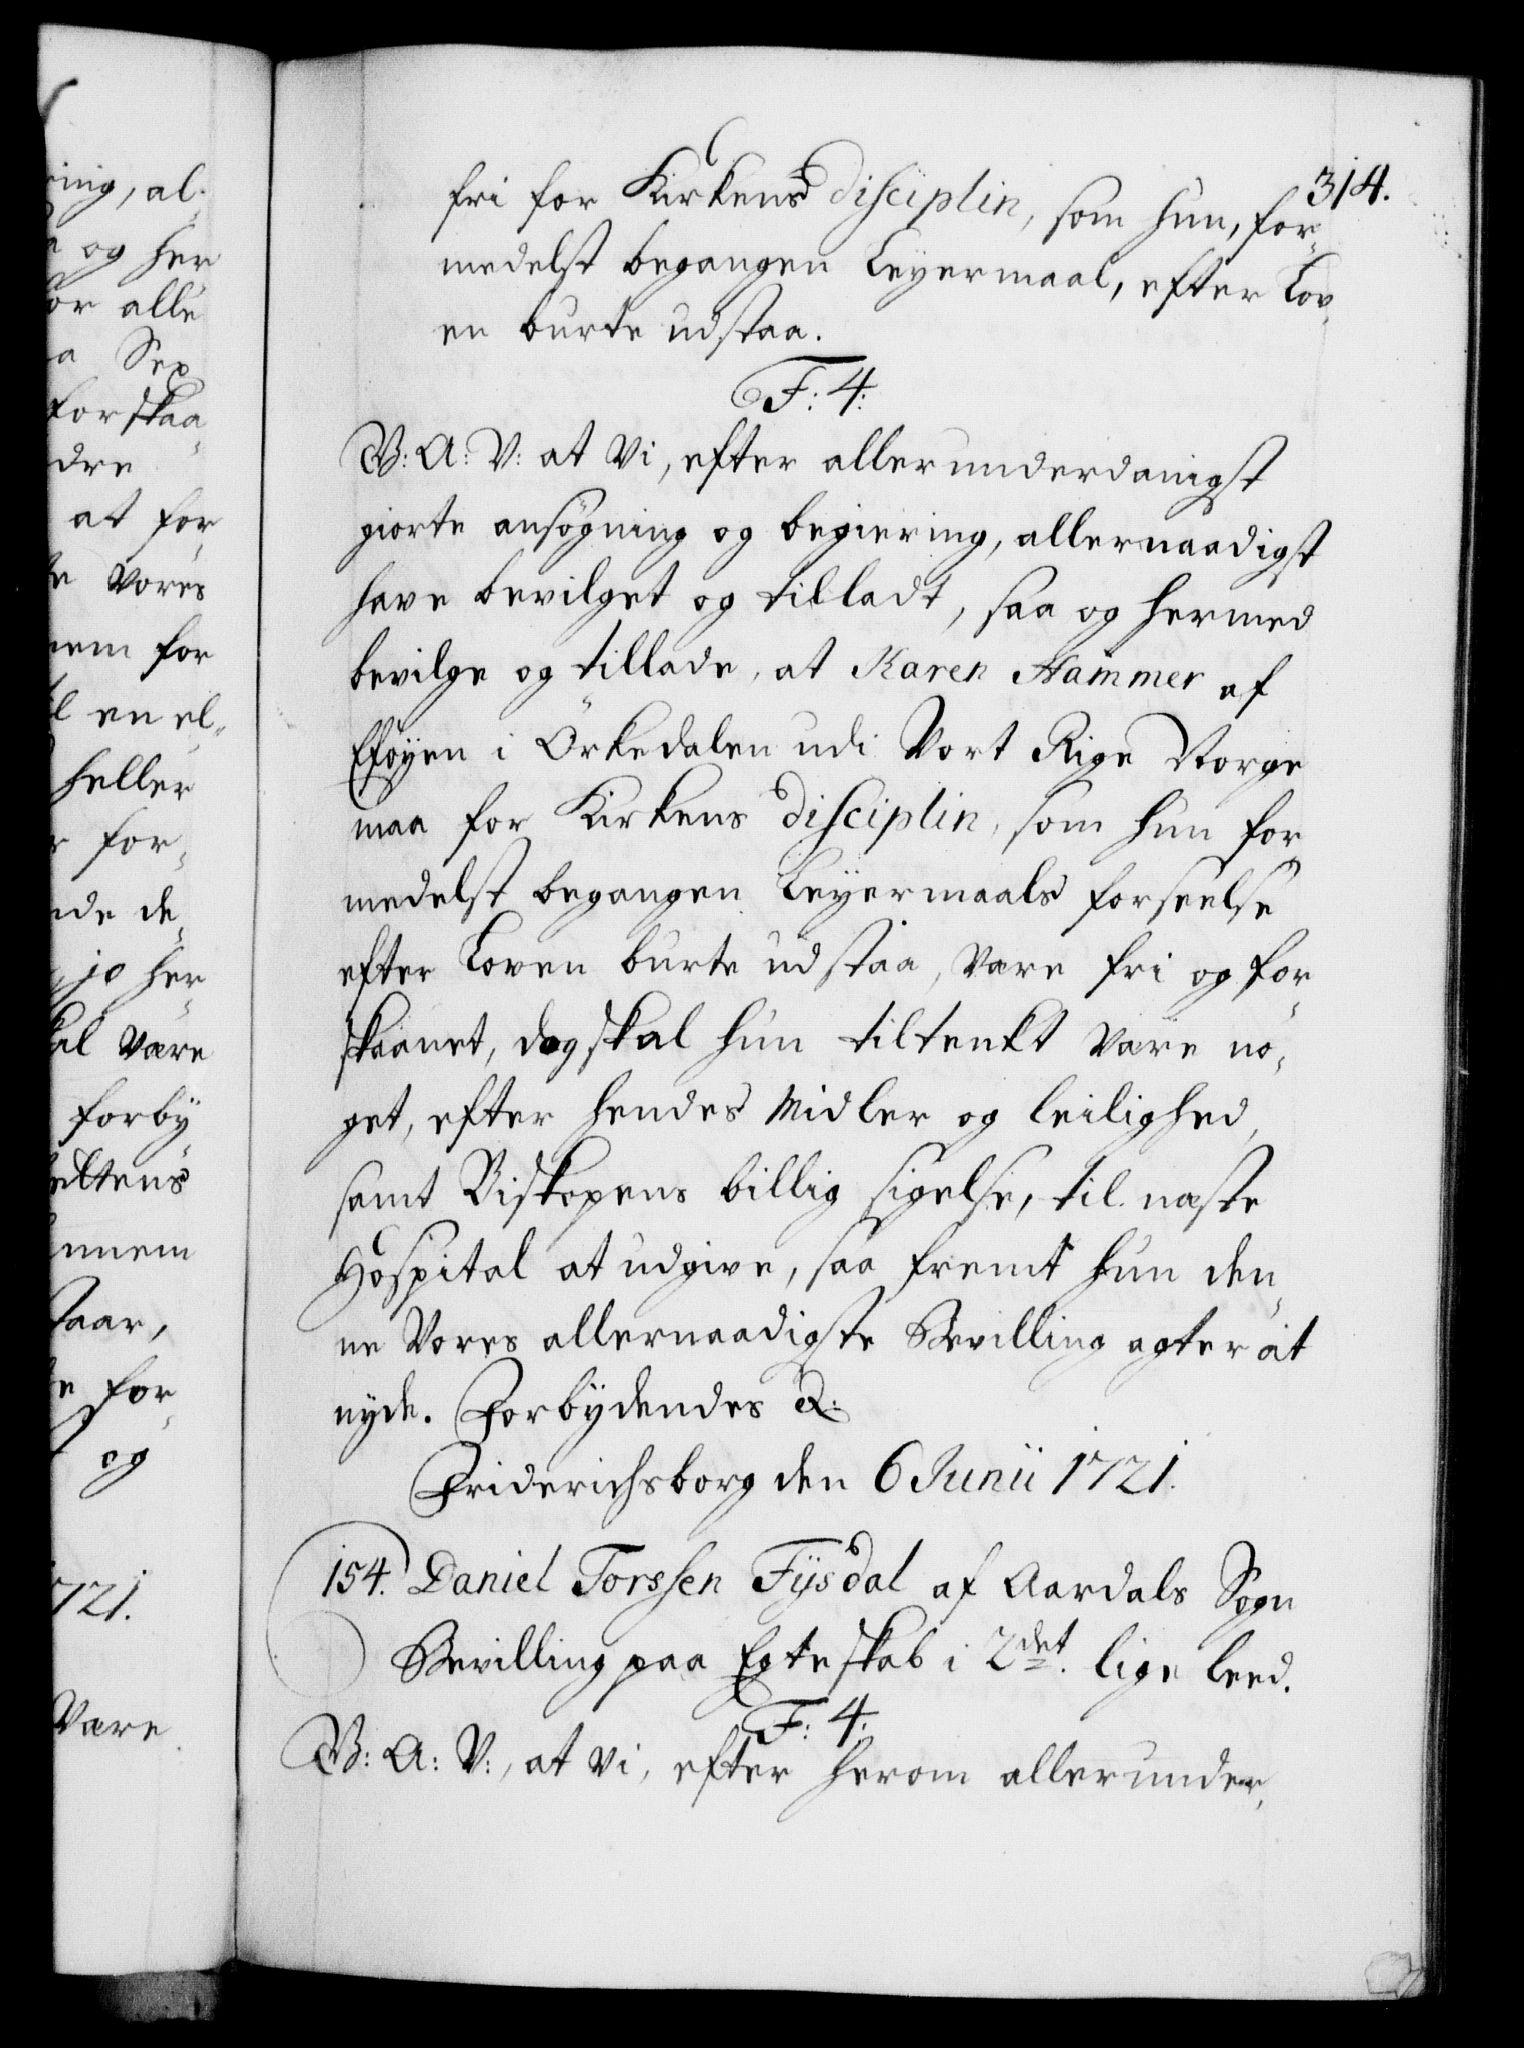 ring, al-
og her
for alle
a Sex
forskaa-
dre
at for-
te Vores
nem for
en el-
heller
for-
nde de-
jo her-
kal være
forby-
nnem
staar,
for-
og
1721.
Være
314.
fri for Kirkens disciplin, som hun, for-
medelst begangen Leyermaal, efter Lov-
en burte udstaa.
F: 4:
W: A: V: at Vi, efter allerunderdanigst
giorte ansögning og begiering, allernaadigst
have bevilget og tilladt, saa og hermed
bevilge og tillade, at Karen Hammer af
Evöyen i Örkedalen udi Vort Rige Norge
maa for Kirkens disciplin, som hun for-
medelst begangen Leyermaals forseelse
efter Loven burte udstaa, være fri og for-
skaanet, dog skal hun tiltenkt være no-
get, efter hendes Midler og leilighed,
samt Biskopens billig sigelse, til næste
Hospital at udgive, saa fremt hun den-
ne Vores allernaadigste Bevilling agter at
nyde. Forbydendes &:
Friderichsborg den 6 Junii 1721.
154. Daniel Torssen Fijsdal af Aardals Sogn
Bevilling paa Egteskab i 2det. lige leed.
F: 4:
W: A: V:, at Vi, efter herom allerunder-